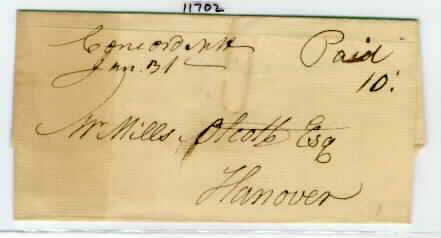 11702
Concord NH
Jan. 31
Paid
10
Mr Mills Olcott Esq
Hanover